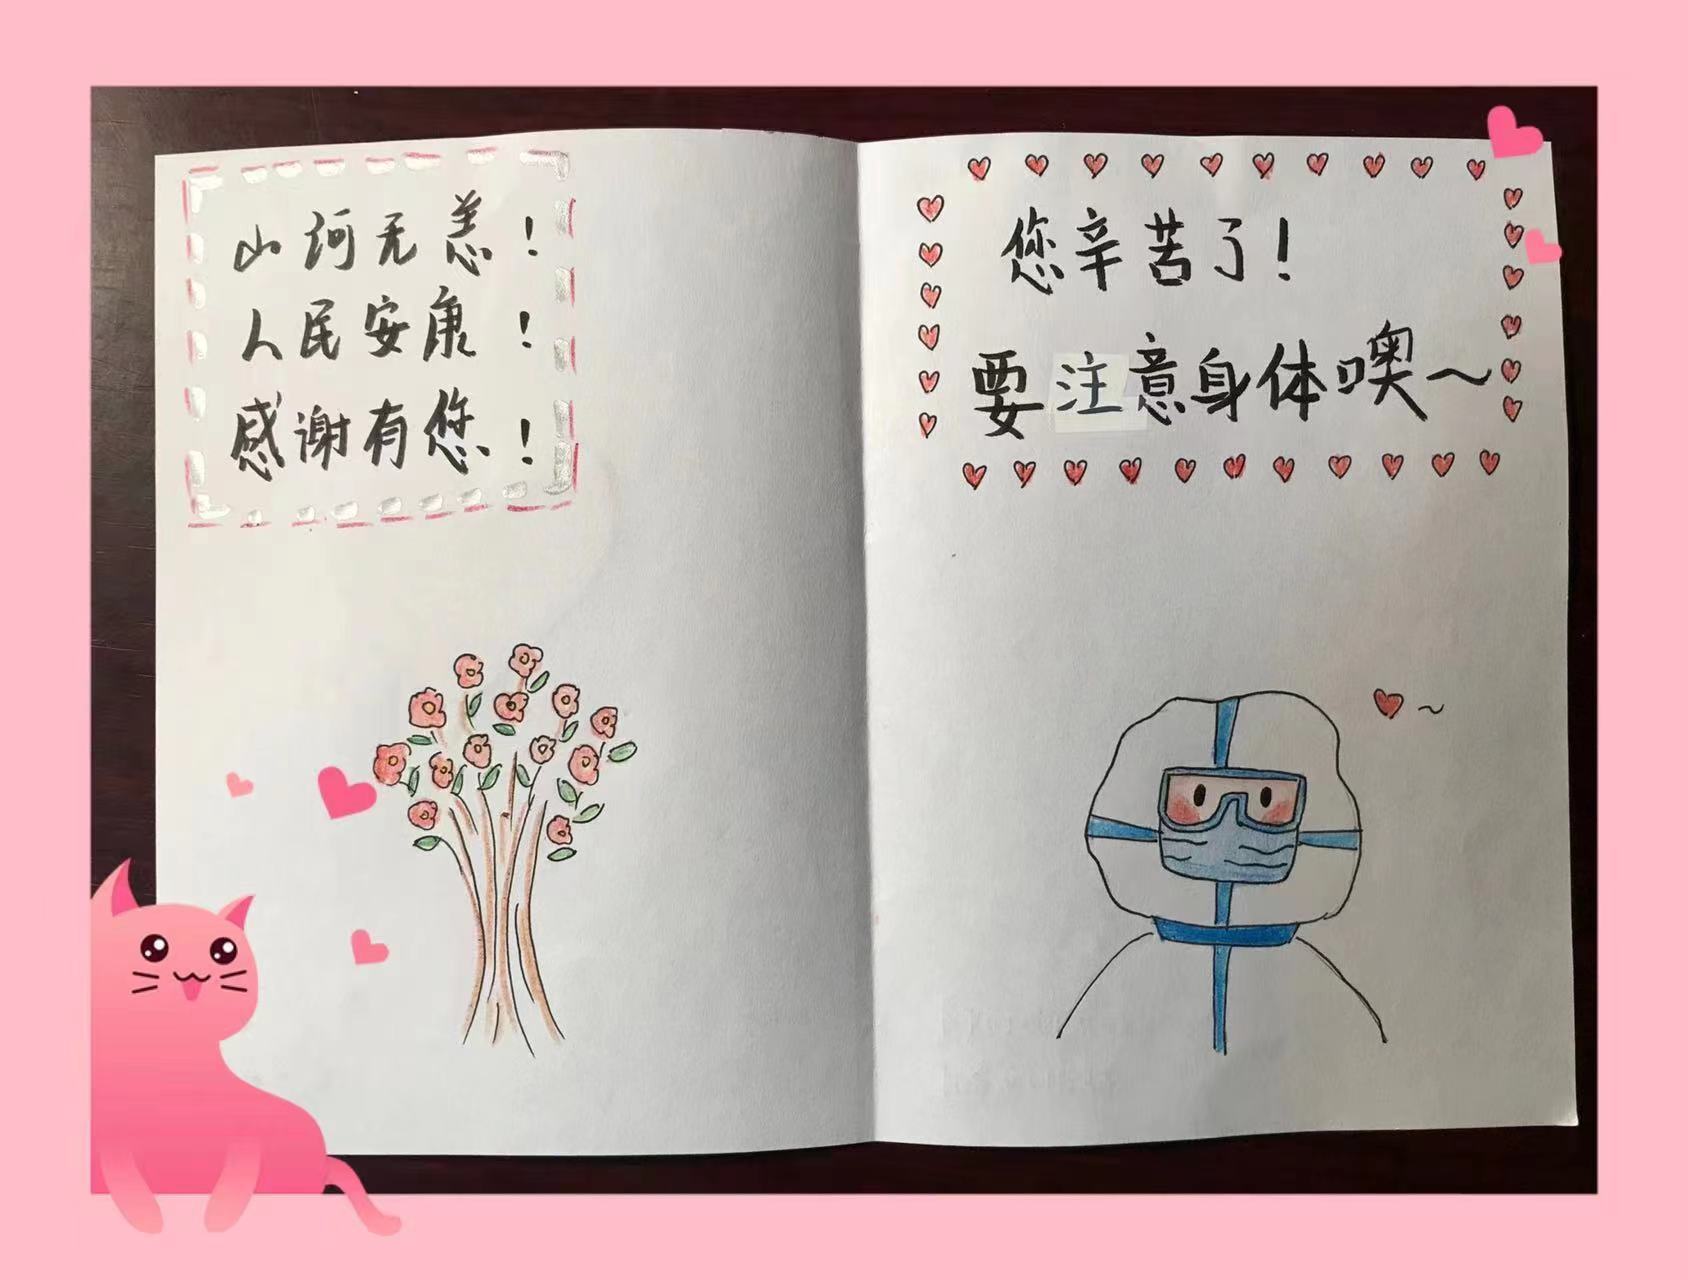 山河无恙！
人民安康！
感谢有您！
您辛苦了！
要注意身体噢～